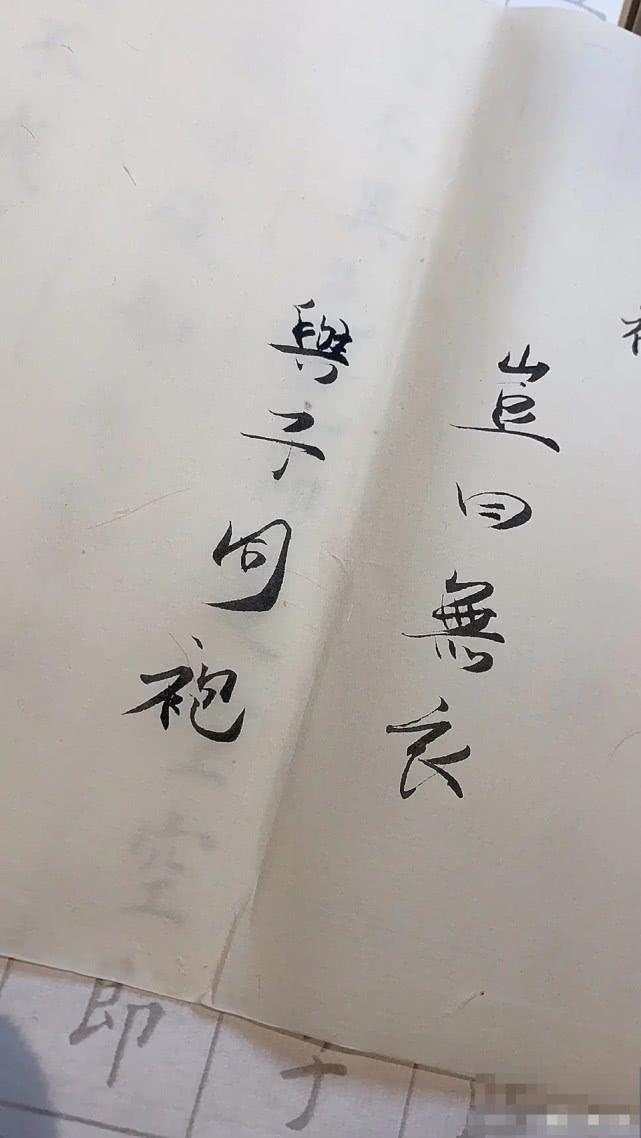 豈曰無衣
與子同袍
空
即